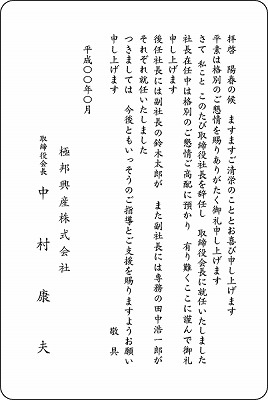 拝啓　陽春の候　ますますご清栄のこととお喜び申し上げます
平素は格別のご懇情を賜りありがたく御礼申し上げます
さて　私こと　このたび取締役社長を辞任し　取締役会長に就任いたしました
社長在任中は格別のご懇情ご高配に預かり　有り難くここに謹んで御礼
申し上げます
後任社長には副社長の鈴木太郎が　また副社長には専務の田中浩一郎が
それぞれ就任いたしました
つきましては　今後ともいっそうのご指導とご支援を賜りますようお願い
申し上げます
敬具
平成〇〇年〇月
極邦興産株式会社
取締役会長　中村康夫